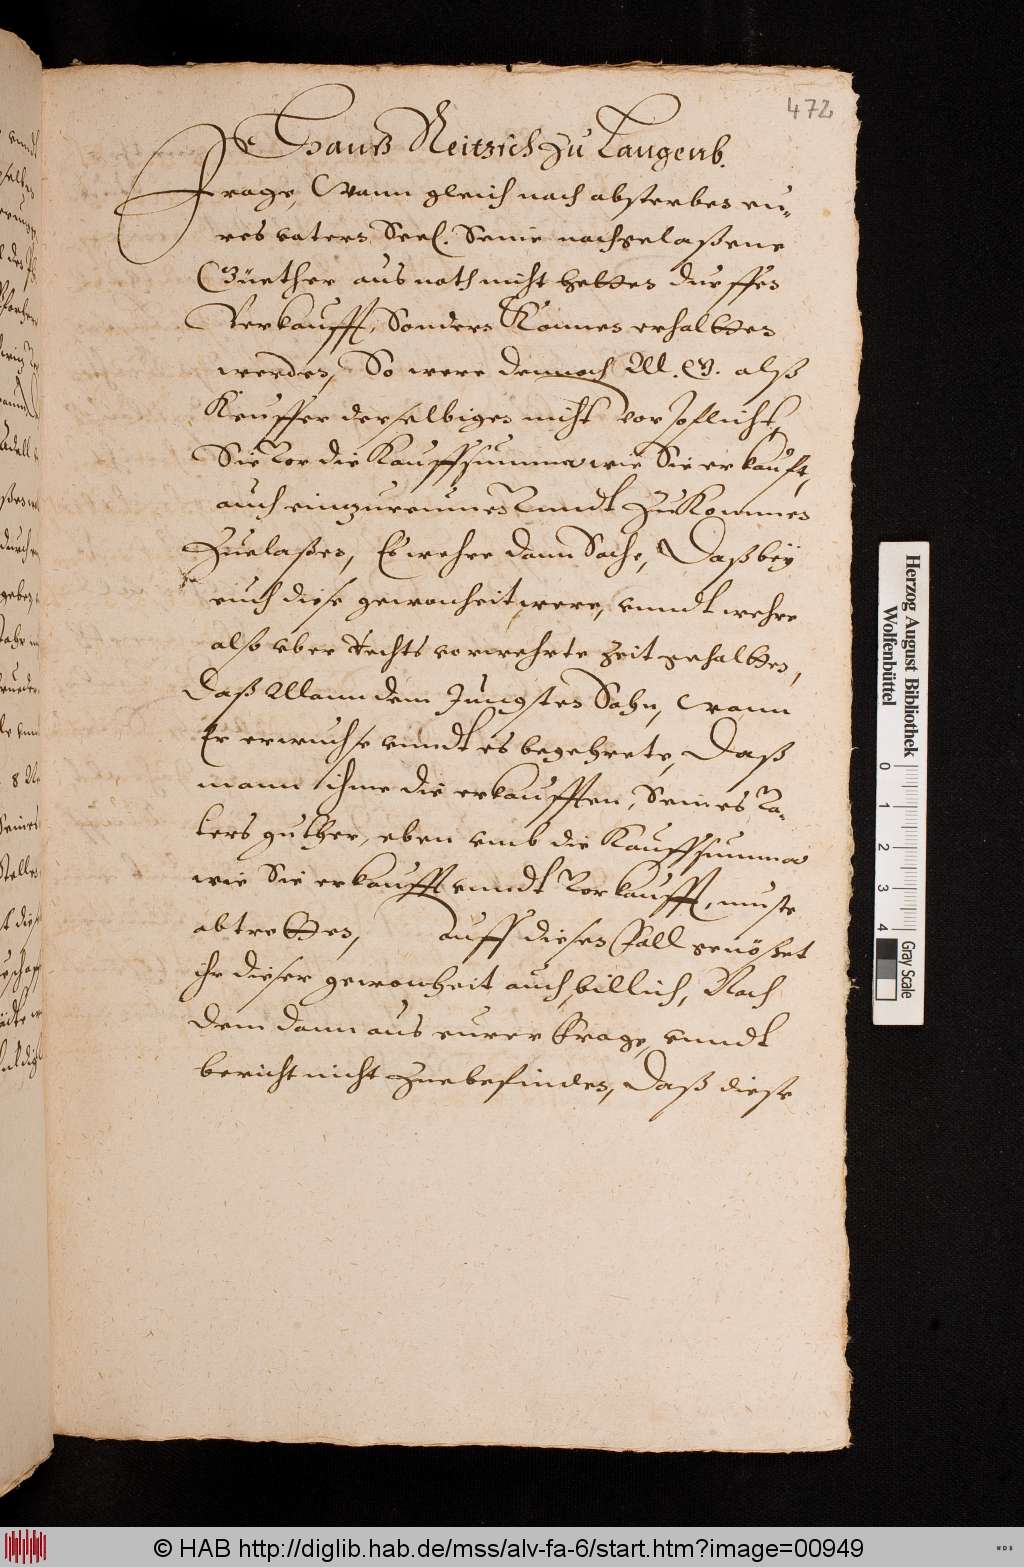 472
Hanß Neitzsch zu Langenb.
Frage, Wann gleich nach absterben eu-
res vaters Seel. Seine nachgelaßene
Güether aus noth nicht hetten durffen
Verkaufft, Sondern Können erhaltten
werden, So were dennoch M. G. alß
Keuffer derselbigen nicht vorpflicht,
Sie Vor die Kauffsumma wie Sie erkauft,
auch einzureumen Vundt zu Kommen
zuelaßen, Es wehre dann Sache, Daß bey
euch diese gewonheit were, vnndt wehre
also vber Rechts vorwehrte zeit gehaltten,
daß Mann dem Jungsten Sohn, Wann
Er erwuchse vnndt es begehrete, Daß
mann ihme die erkaufften, Seines Va-
ters guther, eben vmb die Kauffsumma
wie Sie erkaufft vnndt Vorkaufft, muste
abtretten, auff diesen Fall genößet
ihr dieser gewonheit auch billich, Nach
dem dann aus eurer Frage, vnndt
bericht nicht zuebefinden, Daß diese
Herzog August Bibliothek
Wolfenbüttel
0 1 2 3 4
Gray Scale
© HAB http://diglib.hab.de/mss/alv-fa-6/start.htm?image=00949